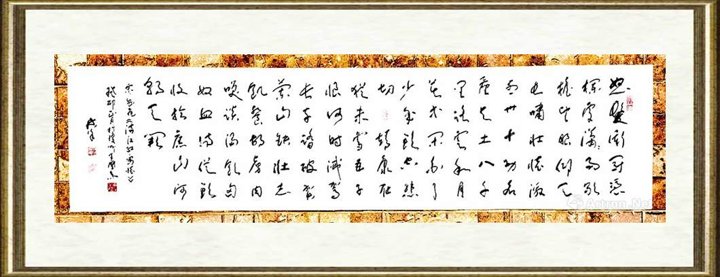 怒髮衝冠憑
欄處瀟雨歇
抬望眼仰天
長嘯壯懷激
烈三十功名
塵與土八千
里路雲和月
莫等閒白了
少年頭空悲
切靖康恥
猶未雪臣子
恨何時滅駕
長車踏破賀
蘭山缺壯志
飢餐胡虜肉
笑談渴飲匈
奴血待從頭
收拾舊山河
朝天闕
宋岳飛滿江紅寫懷
Artron.Net